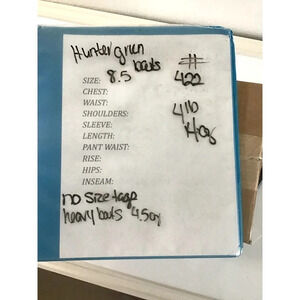 Hunter green
boots #
SIZE: 8.5 422
CHEST:
WAIST:
SHOULDERS: 4 lb
SLEEVE:
LENGTH:
PANT WAIST:
RISE:
HIPS:
INSEAM:
no size tags
heavy boots 4.5